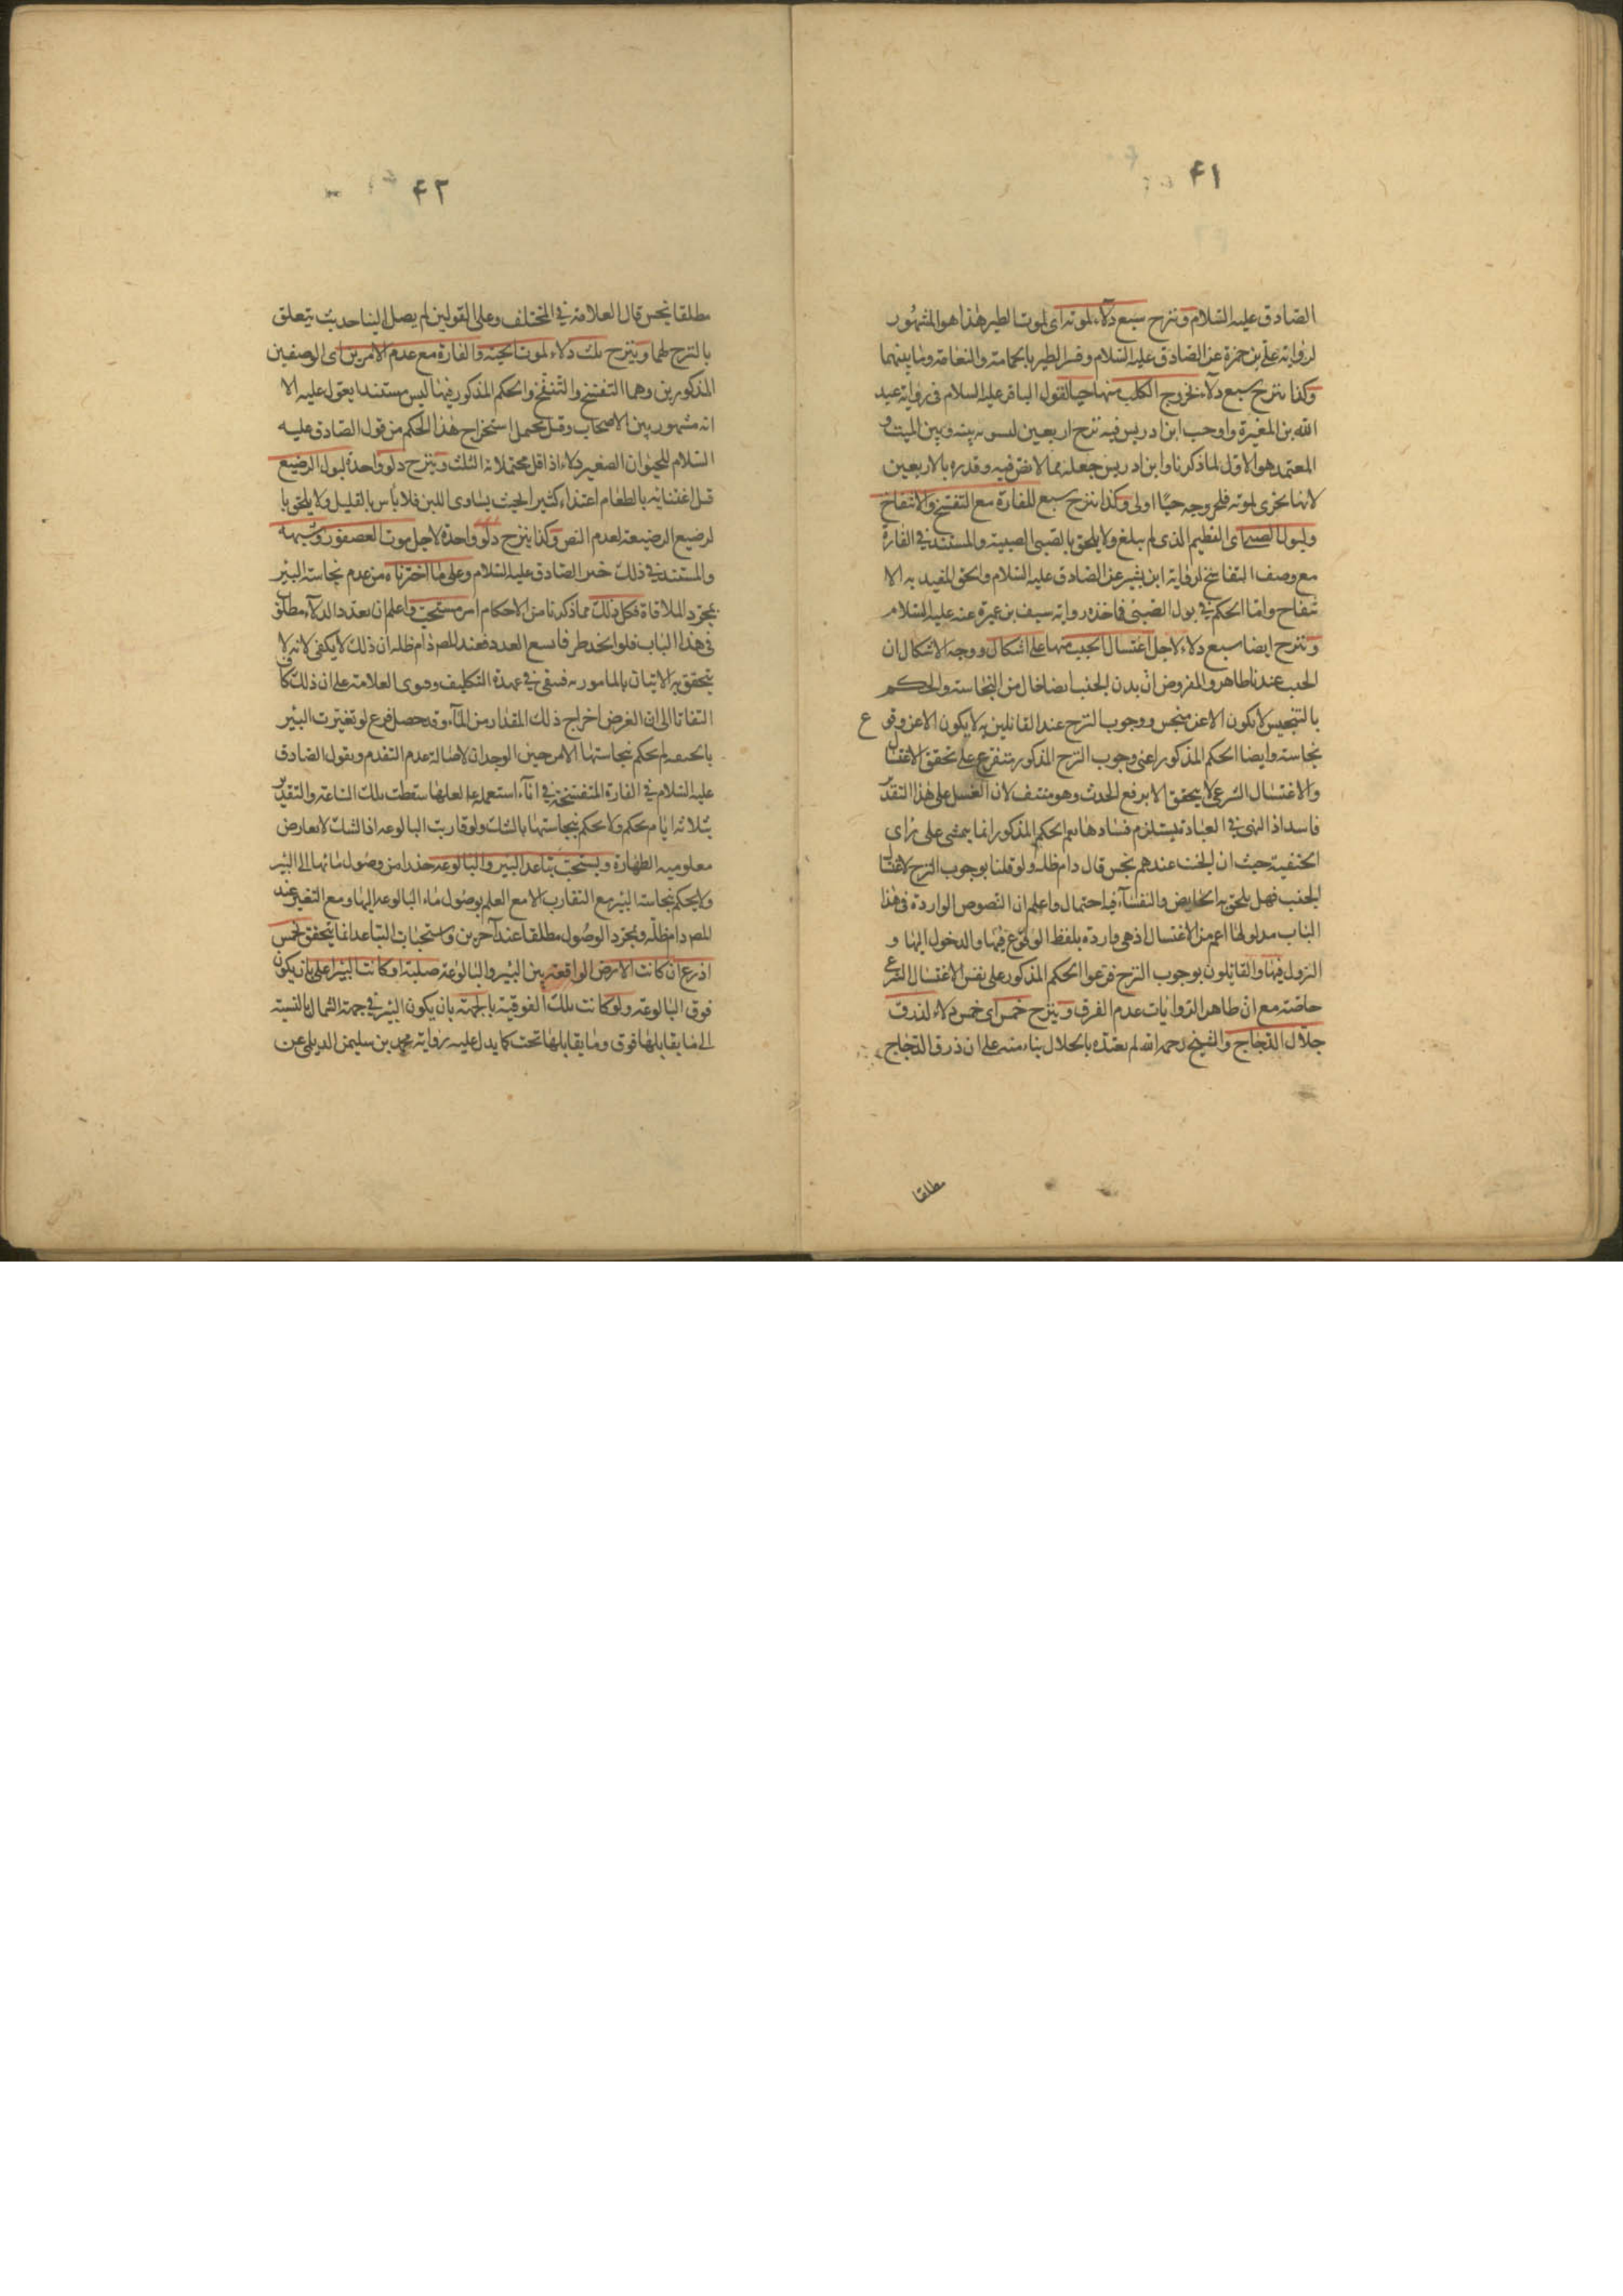 ۴۱
الصادق عليه السلام وننزح سبع دلاء لموته اى لموت الطير هذا هو المشهور
لرواية على بن حمزة عن الصادق عليه السلام وفسر الطير بالحمامة والنعامة وما بينهما
وكذا ننزح سبع دلاء لخروج الكلب منها حيا لقول الباقر عليه السلام فى رواية عبد
الله بن المغيرة واوجب ابن ادريس فيه نزح اربعين لسوية بينه وبين الميت و
المعتمد هو الاول لما ذكرنا وابن ادريس جعله مما لا نص فيه وقدره بالاربعين
لانها يجزى لموته فلخروجه حيا اولى وكذا ننزح سبع للفارة مع التفسخ والانتفاخ
ولبول الصبى اى الفطيم الذى لم يبلغ ولا يلحق بالصبى الصبية والمستند فى الفارة
مع وصف التفاسخ لرواية ابن بشير عن الصادق عليه السلام والحق المفيد به الا
نتفاخ واما الحكم فى بول الصبى فماخذه رواية سيف بن عميرة عنه عليه السلام
وننزح ايضا سبع دلاء لاجل اغتسال الجنب منها على اشكال ووجه الاشكال ان
الجنب عندنا طاهر والمفروض ان بدن الجنب ايضا خال من النجاسة والحكم
بالتنجيس لا يكون الا عن منجس ووجوب النزح عند القائلين به لا يكون الا عن وقوع
نجاسة وايضا الحكم المذكور اعنى وجوب النزح المذكور متفرع على تحقق الاغتسال
والاغتسال الشرعى لا يتحقق الا برفع الحدث وهو منتف لان الغسل على هذا التقدير
فاسد اذ النهى فى العبادة يستلزم فسادها نعم الحكم المذكور انما يتمشى على راى
الحنفية حيث ان الجنب عندهم نجس قال دام ظله ولو قلنا بوجوب النزح لاغتسال
الجنب فهل يلحق به الحايض والنفساء فيه احتمال واعلم ان النصوص الواردة فى هذا
الباب مدلولها اعم من الاغتسال اذ هى واردة بلفظ الوقوع فيها والدخول اليها و
النزول فيها والقائلون بوجوب النزح فرعوا الحكم المذكور على نفس الاغتسال الشرعى
خاصة مع ان ظاهر الروايات عدم الفرق وينزح خمس اى خمس دلاء لذرق
جلال الدجاج والشيخ رحمه الله لم يقيده بالجلال بناء منه على ان ذرق الدجاج
مطلقا
۴۲
مطلقا نجس قال العلامة فى المختلف وعلى القولين لم يصل الينا حديث يتعلق
بالنزح لهما وينزح ثلث دلاء لموت الحية والفارة مع عدم الامرين اى الوصفين
المذكورين وهما التفسخ والتنفخ والحكم المذكور فيها ليس مستندا يعول عليه الا
انه مشهور بين الاصحاب وقيل يحتمل استخراج هذا الحكم من قول الصادق عليه
السلام للحيوان الصغير دلاء اذ اقل محتملاته الثلث وينزح دلو واحدة لبول الرضيع
قبل اغتذائه بالطعام اعتذاء كثيرا بحيث يساوى اللبن فلا باس بالقليل ولا يلحق با
لرضيع الرضيعة لعدم النص وكذا ينزح دلو واحدة لاجل موت العصفور وشبهه
والمستند فى ذلك خبر الصادق عليه السلام وعلى ما اخترناه من عدم نجاسة البئر
بمجرد الملاقاة فكل ذلك مما ذكرنا من الاحكام امر مستحب واعلم ان تعدد الدلاء مطلق
فى هذا الباب فلو اتخد طرفا سع العدد فعند المص دام ظله ان ذلك لا يكفى لانه لا
يتحقق به الاتيان بالمامور به فيبقى فى عهدة التكليف وفتوى العلامة على ان ذلك كاف
التفاتا الى ان الغرض اخراج ذلك المقدار من الماء وقد حصل فرع لو تغيرت البئر
بالجيفة لم يحكم بنجاستها الا من حين الوجدان لاصالة عدم التقدم وبقول الصادق
عليه السلام فى الفارة المتفسخة فى اناء استعمله لعلها سقطت تلك الساعة والتقدير
بثلاثة ايام محكم ولا يحكم بنجاستها بالشك ولو قاربت البالوعة اذ الشك لا يعارض
معلومية الطهارة ويستحب تباعد البئر والبالوعة حذرا من وصول مائها الى البئر
ولا يحكم بنجاسة البئر مع التقارب الا مع العلم بوصول ماء البالوعة اليها ومع التغير عند
المص دام ظله وبمجرد الوصول مطلقا عند آخرين واستحباب التباعد انما يتحقق بخمس
اذرع ان كانت الارض الواقعة بين البئر والبالوعة صلبة او كانت البئر اعلى بان يكون
فوق البالوعة ولو كانت تلك الفوقية بالجهة بان يكون البئر فى جهة الشمال بالنسبة
الى ما يقابلها فوق وما يقابلها تحت كما يدل عليه رواية محمد بن سليمن الديلمى عن